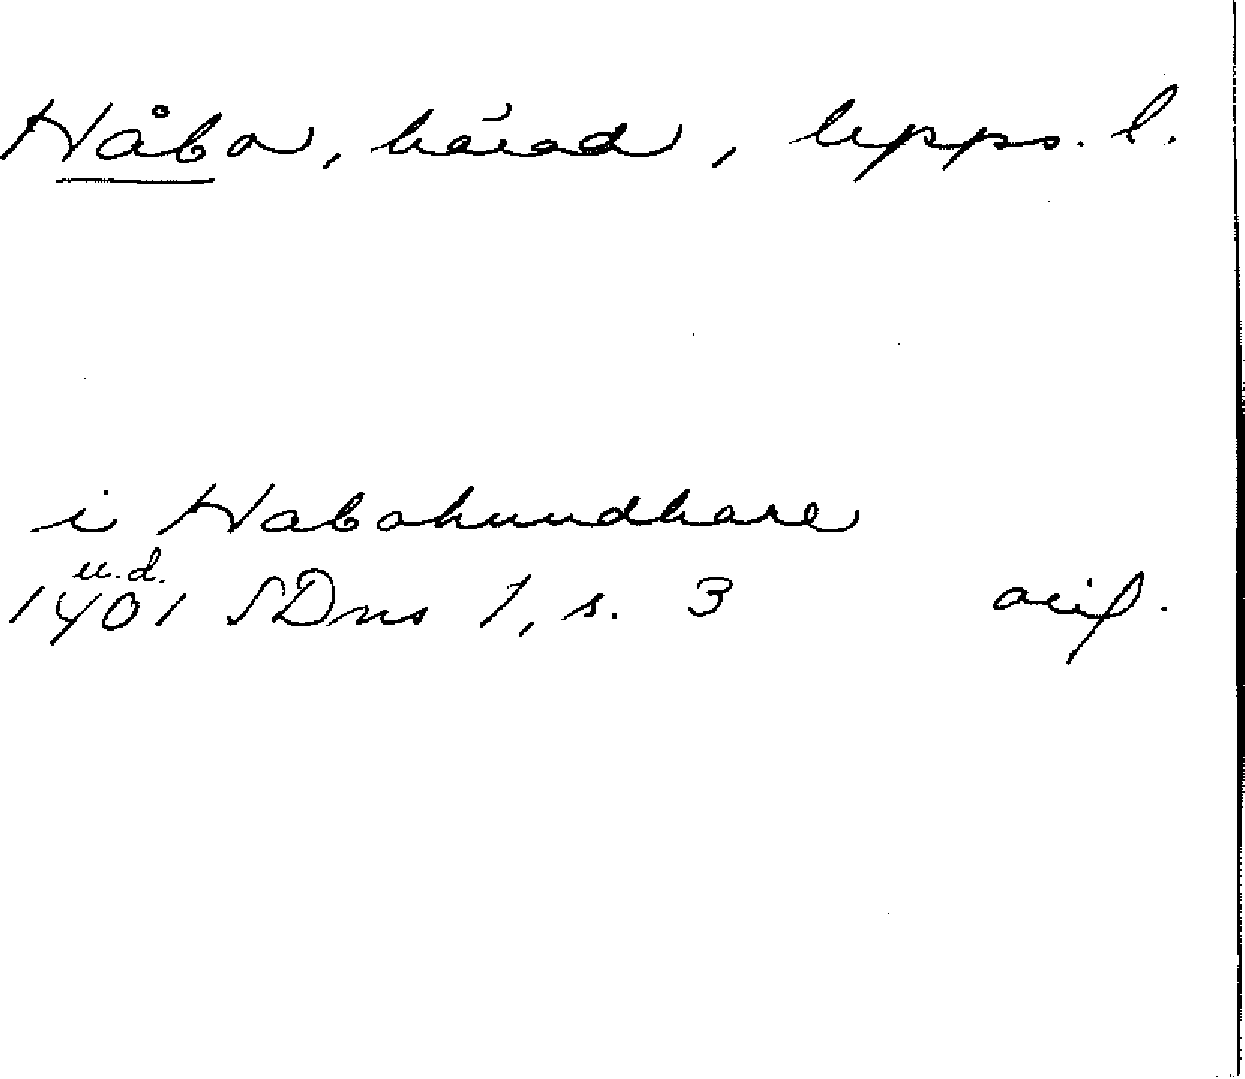 Håbo, härad, Upps. l.
i Habohundhare
u.d.
1401 SDns 1, s. 3 avil.